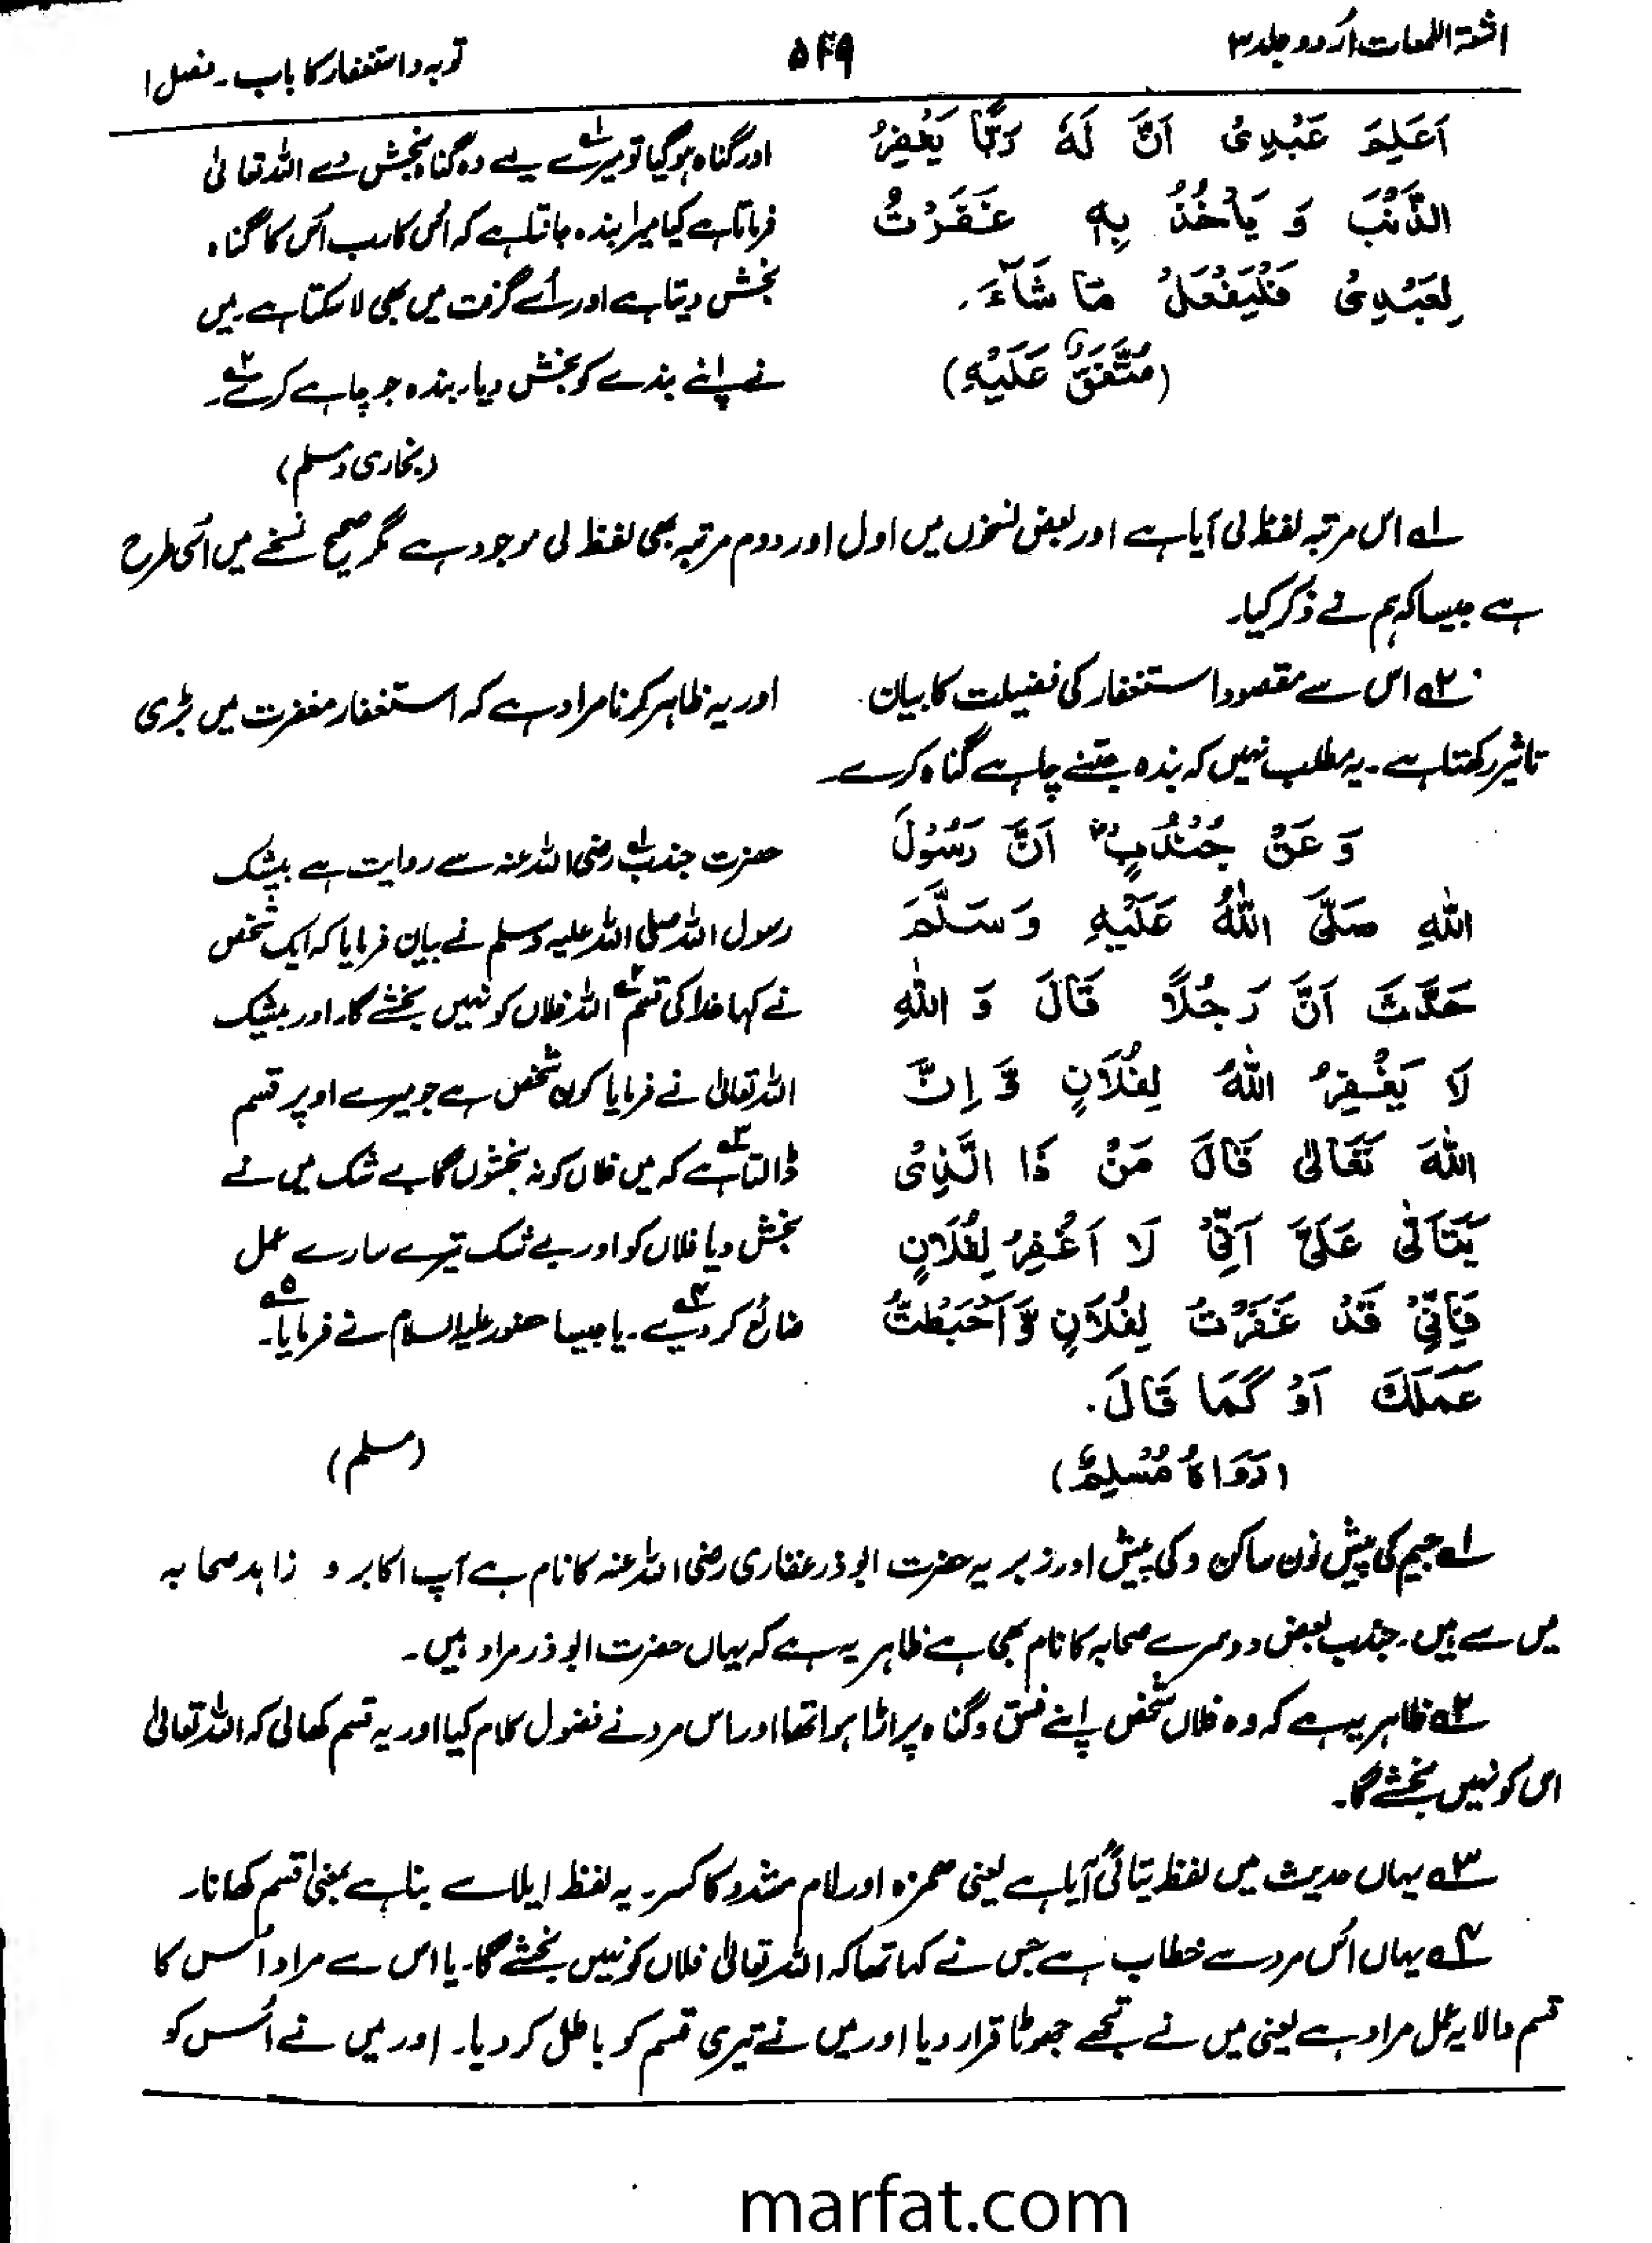 اشعۃ اللمعات اردو جلد ۳
۵۴۹
توبہ و استغفار کا باب۔ فصل ۱
اَعَلِمَ عَبْدِیْ اَنَّ لَهٗ رَبًّا یَّغْفِرُ
الذَّنْۢبَ وَ یَاْخُذُ بِهٖ غَفَرْتُ
لِعَبْدِیْ فَلْیَفْعَلْ مَا شَآءَ۔
(مُتَّفَقٌ عَلَیْهِ)
اور گناہ ہو گیا تو میرے لیے وہ گناہ بخش دے اللہ تعالیٰ
فرماتا ہے کیا میرا بندہ جانتا ہے کہ اُس کا رب اُس کا گناہ
بخش دیتا ہے اور اُسے گرفت میں بھی لا سکتا ہے میں
نے اپنے بندے کو بخش دیا۔ بندہ جو چاہے کرے۲؎۔
(بخاری ومسلم)
۱؎ اس مرتبہ لفظ لی آیا ہے اور بعض نسخوں میں اول اور دوم مرتبہ بھی لفظ لی موجود ہے مگر صحیح نسخے میں اُسی طرح
ہے جیسا کہ ہم نے ذکر کیا۔
۲؎ اس سے مقصود استغفار کی فضیلت کا بیان۔ اور یہ ظاہر کرنا مراد ہے کہ استغفار مغفرت میں بڑی
تاثیر رکھتا ہے۔ یہ مطلب نہیں کہ بندہ جتنے چاہے گناہ کرے۔
وَ عَنْ جُنْدُبٍ ؓ اَنَّ رَسُوْلَ
اللّٰهِ صَلَّی اللّٰهُ عَلَیْهِ وَسَلَّمَ
حَدَّثَ اَنَّ رَجُلًا قَالَ وَ اللّٰهِ
لَا یَغْفِرُ اللّٰهُ لِفُلَانٍ وَّ اِنَّ
اللّٰهَ تَعَالٰی قَالَ مَنْ ذَا الَّذِیْ
یَتَاَلّٰی عَلَیَّ اَنِّیْ لَا اَغْفِرُ لِفُلَانٍ
فَاِنِّیْ قَدْ غَفَرْتُ لِفُلَانٍ وَّ اَحْبَطْتُ
عَمَلَكَ اَوْ كَمَا قَالَ۔
(رَوَاهُ مُسْلِمٌ)
حضرت جندب۱؎ رضی اللہ عنہ سے روایت ہے بیشک
رسول اللہ صلی اللہ علیہ وسلم نے بیان فرمایا کہ ایک شخص
نے کہا خدا کی قسم۲؎ اللہ فلاں کو نہیں بخشے گا۔ اور بیشک
اللہ تعالیٰ نے فرمایا کون شخص ہے جو میرے اوپر قسم
ڈالتا۳؎ ہے کہ میں فلاں کو نہ بخشوں گا بے شک میں نے
بخش دیا فلاں کو اور بے شک تیرے سارے عمل
ضائع کر دیے۴؎۔ یا جیسا حضور علیہ السلام نے فرمایا۵؎۔
(مسلم)
۱؎ جیم کی پیش نون ساکن د کی پیش اور زبر یہ حضرت ابو ذر غفاری رضی اللہ عنہ کا نام ہے آپ اکابر و زاہد صحابہ
میں سے ہیں۔ جندب بعض دوسرے صحابہ کا نام بھی ہے ظاہر یہ ہے کہ یہاں حضرت ابو ذر مراد ہیں۔
۲؎ ظاہر یہ ہے کہ وہ فلاں شخص اپنے فسق و گناہ پر اڑا ہوا تھا اور اس مرد نے فضول کلام کیا اور یہ قسم کھائی کہ اللہ تعالیٰ
اس کو نہیں بخشے گا۔
۳؎ یہاں حدیث میں لفظ یتالّٰی آیا ہے یعنی ھمزہ اور لام مشدد کا کسر۔ یہ لفظ ایلا سے بنا ہے بمعنیٰ قسم کھانا۔
۴؎ یہاں اُس مرد سے خطاب ہے جس نے کہا تھا کہ اللہ تعالیٰ فلاں کو نہیں بخشے گا۔ یا اس سے مراد اُس کا
قسم والا یہ عمل مراد ہے یعنی میں نے تجھے جھوٹا قرار دیا اور میں نے تیری قسم کو باطل کر دیا۔ اور میں نے اُس کو
marfat.com